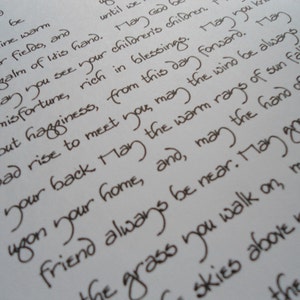 be until we
ine warm May God be
r fields, and
palm of His hand. May
ay you see your children's children. May you know
misfortune, rich in blessings. May
out happiness, from this day forward. May
oad rise to meet you, may the wind be always
your back May the warm rays of sun fa
upon your home, and, may the hand of
friend always be near. May
the grass you walk on, m
skies above
the